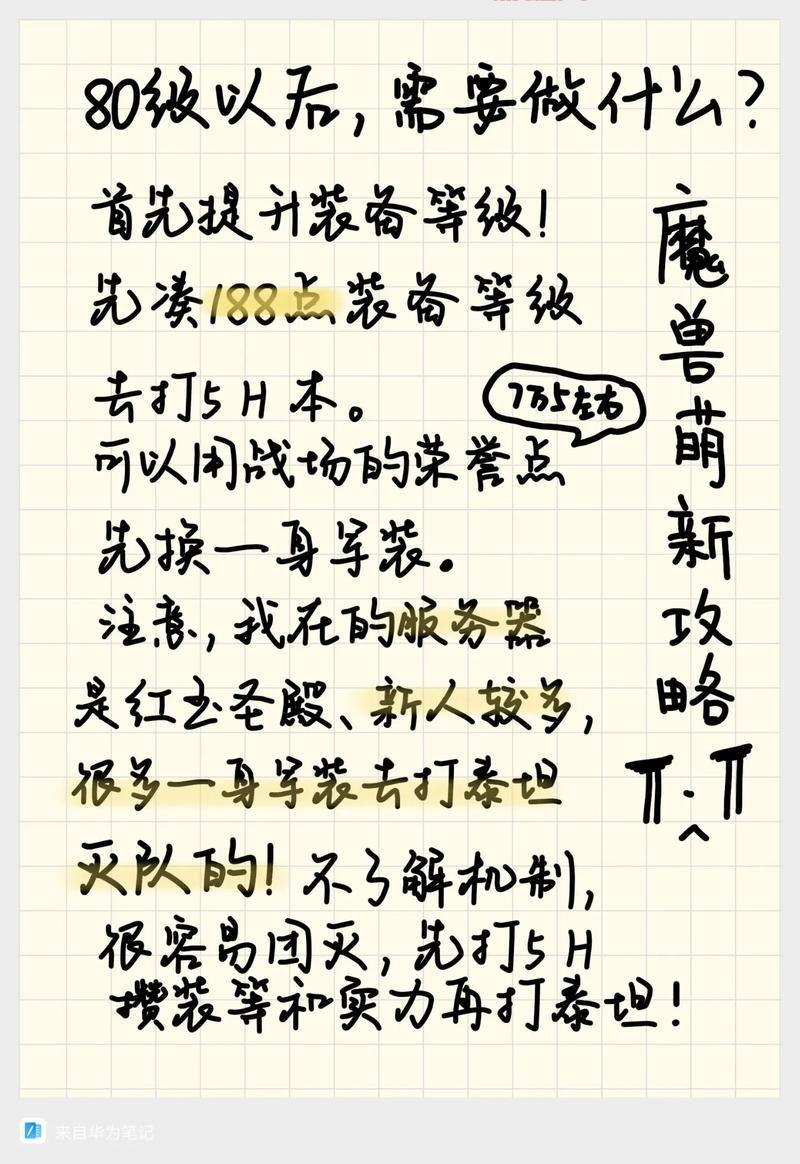 80级以后，需要做什么？
首先提升装备等级！
先凑188点装备等级
去打5H本。
7万5左右
可以用战场的荣誉点
先换一身军装。
注意，我在的服务器
是红玉圣殿、新人较多，
很多一身军装去打泰坦
灭队的！不了解机制，
很容易团灭，先打5H
攒装等和实力再打泰坦！
魔兽萌新攻略
π.π
^
来自华为笔记